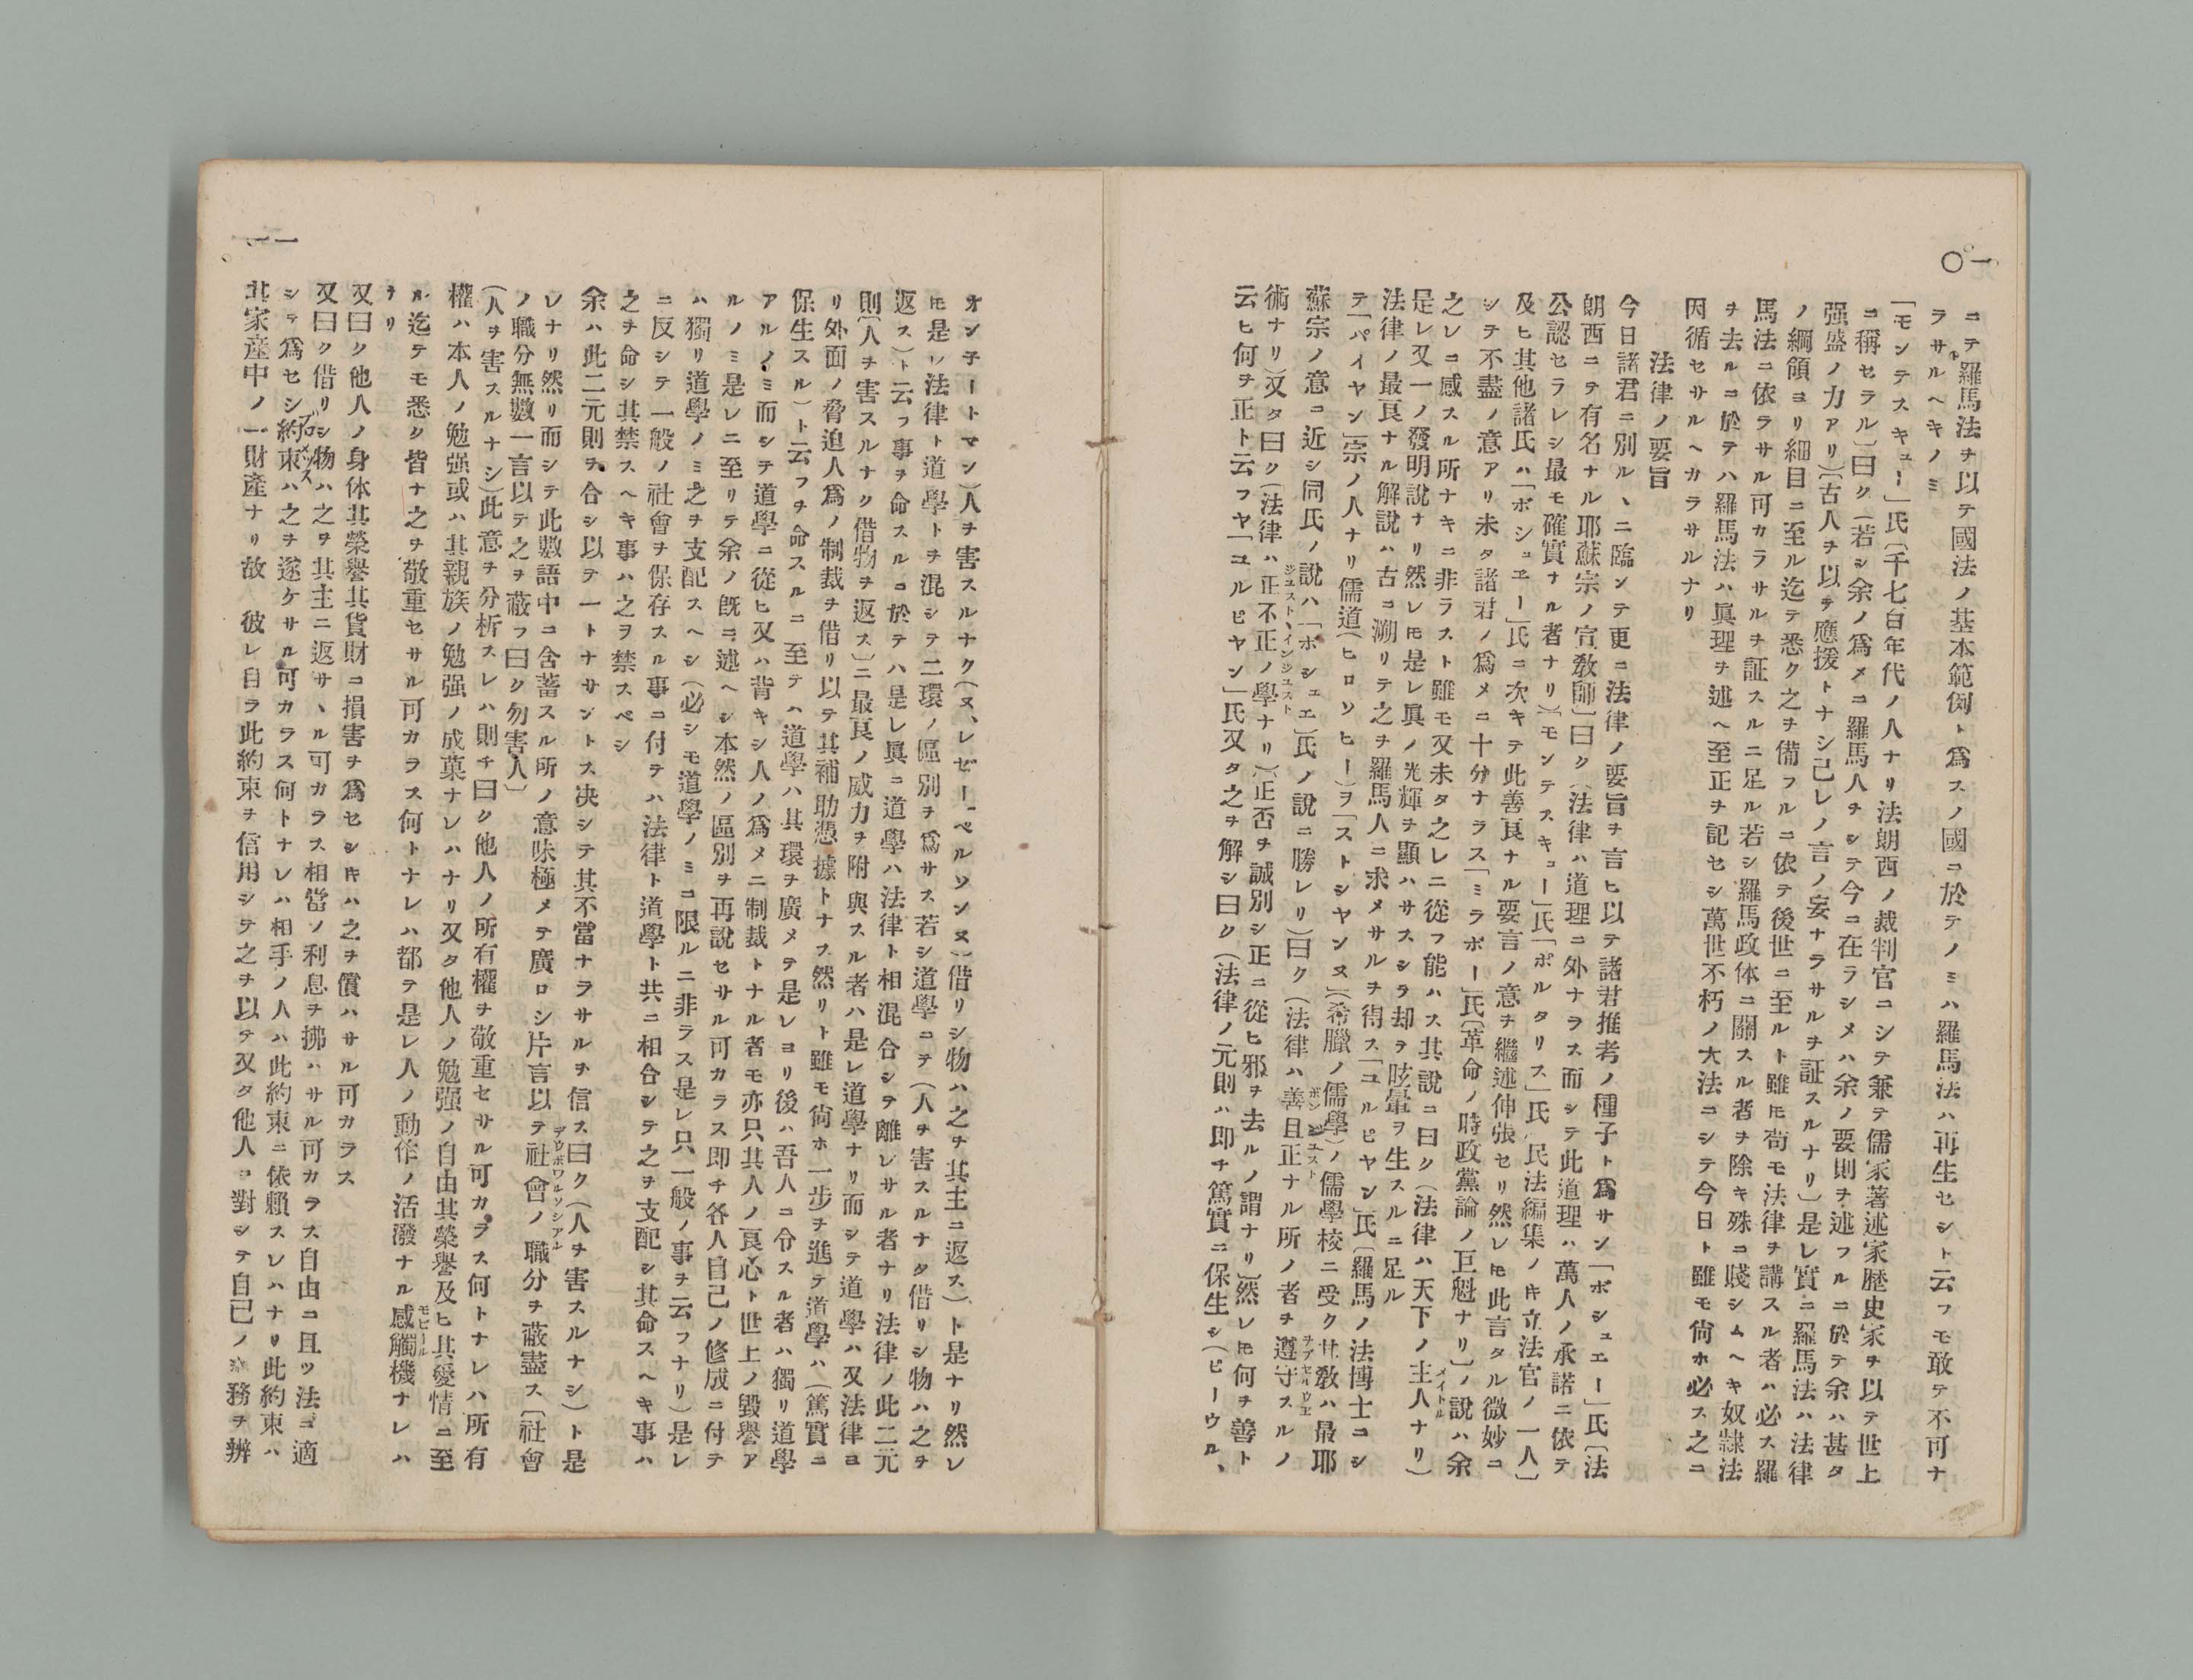 一〇
ニテ羅馬法ヲ以テ國法ノ基本範例ト爲スノ國ニ於テノミハ羅馬法ハ再生セシト云フモ敢テ不可ナ
ラサルヘキノミ
「モンテスキユー」氏(千七百年代ノ人ナリ法朗西ノ裁判官ニシテ兼テ儒家著述家歴史家ヲ以テ世上
ニ稱セラル)曰ク(若シ余ノ爲メニ羅馬人ヲシテ今ニ在ラシメハ余ノ要則ヲ述フルニ於テ余ハ甚タ
强盛ノ力アリ)(古人ヲ以テ應援トナシ己レノ言ノ妄ナラサルヲ証スルナリ)是レ實ニ羅馬法ハ法律
ノ綱領ヨリ細目ニ至ル迄テ悉ク之ヲ備フルニ依テ後世ニ至ルト雖モ苟モ法律ヲ講スル者ハ必ス羅
馬法ニ依ラサル可カラサルヲ証スルニ足ル若シ羅馬政体ニ關スル者ヲ除キ殊ニ賤シムヘキ奴隸法
ヲ去ルニ於テハ羅馬法ハ眞理ヲ述ヘ至正ヲ記セシ萬世不朽ノ大法ニシテ今日ト雖モ尙ホ必ス之ニ
因循セサルヘカラサルナリ
法律ノ要旨
今日諸君ニ別ルヽニ臨ンテ更ニ法律ノ要旨ヲ言ヒ以テ諸君推考ノ種子ト爲サン「ボシュエー」氏(法
朗西ニテ有名ナル耶蘇宗ノ宣敎師)曰ク(法律ハ道理ニ外ナラス而シテ此道理ハ萬人ノ承諾ニ依テ
公認セラレシ最モ確實ナル者ナリ)「モンテスキュー」氏「ポルタリス」氏(民法編集ノ片立法官ノ一人)
及ヒ其他諸氏ハ「ボシュエー」氏ニ次キテ此善良ナル要言ノ意ヲ繼述伸張セリ然レ𪜈此言タル微妙ニ
シテ不盡ノ意アリ未タ諸君ノ爲メニ十分ナラス「ミラボー」氏(革命ノ時政黨論ノ巨魁ナリ)ノ說ハ余
之レニ感スル所ナキニ非ラスト雖モ又未タ之レニ從フ能ハス其說ニ曰ク(法律ハ天下ノ主人ナリ)
是レ又一ノ發明說ナリ然レ𪜈是レ眞ノ光輝ヲ顯ハサスシテ却テ眩暈ヲ生スルニ足ル
法律ノ最良ナル解說ハ古ニ溯リテ之ヲ羅馬人ニ求メサルヲ得ス「ユルピヤン」氏(羅馬ノ法博士ニシ
テ「パイヤン」宗ノ人ナリ儒道(ヒロソヒー)ヲ「ストシヤンヌ」(希臘ノ儒學)ノ儒學校ニ受ク其敎ハ最耶
蘇宗ノ意ニ近シ同氏ノ說ハ「ボシュエ」氏ノ說ニ勝レリ)曰ク(法律ハ善且正ナル所ノ者ヲ遵守スルノ
術ナリ)又タ曰ク(法律ハ正不正ノ學ナリ)(正否ヲ識別シ正ニ從ヒ邪ヲ去ルノ謂ナリ)然レ𪜈何ヲ善ト
云ヒ何ヲ正ト云フヤ「ユルピヤン」氏又タ之ヲ解シ曰ク(法律ノ元則ハ即チ篤實ニ保生シ(ビーウル、
一一
オンチートマン)人ヲ害スルナク(ヌ、レゼー、ペルソンヌ)借リシ物ハ之ヲ其主ニ返ス)ト是ナリ然レ
𪜈是レ法律ト道學トヲ混シテ二環ノ區別ヲ爲サス若シ道學ニテ(人ヲ害スルナク借リシ物ハ之ヲ
返ス)ト云フ事ヲ命スルニ於テハ是レ眞ニ道學ハ法律ト相混合シテ離レサル者ナリ法律ノ此二元
則(人ヲ害スルナク借物ヲ返ス)ニ最良ノ威力ヲ附與スル者ハ是レ道學ナリ而シテ道學ハ又法律ヨ
リ外面ノ脅迫人爲ノ制裁ヲ借リ以テ其補助憑據トナス然リト雖モ尙ホ一步ヲ進テ道學ハ(篤實ニ
保生スル)ト云フヲ命スルニ至テハ道學ハ其環ヲ廣メテ是レヨリ後ハ吾人ニ令スル者ハ獨リ道學
アルノミ而シテ道學ニ從ヒ又ハ背キシ人ノ爲メニ制裁トナル者モ亦只其人ノ良心ト世上ノ毀譽ア
ルノミ是レニ至リテ余ノ既ニ述ヘシ本然ノ區別ヲ再說セサル可カラス即チ各人自己ノ修成ニ付テ
ハ獨リ道學ノミ之ヲ支配スヘシ(必シモ道學ノミニ限ルニ非ラス是レ只一般ノ事ヲ云フナリ)是レ
ニ反シテ一般ノ社會ヲ保存スル事ニ付テハ法律ト道學ト共ニ相合シテ之ヲ支配シ其命スヘキ事ハ
之ヲ命シ其禁スヘキ事ハ之ヲ禁スベシ
余ハ此二元則ヲ合シ以テ一トナサントス决シテ其不當ナラサルヲ信ス曰ク(人ヲ害スルナシ)ト是
レナリ然リ而シテ此數語中ニ含蓄スル所ノ意味極メテ廣ロシ片言以テ社會ノ職分ヲ蔽盡ス(社會
ノ職分無數一言以テ之ヲ蔽フ曰ク勿害人)
(人ヲ害スルナシ)此意ヲ分析スレハ則チ曰ク他人ノ所有權ヲ敬重セサル可カラス何トナレハ所有
權ハ本人ノ勉强或ハ其親族ノ勉强ノ成菓ナレハナリ又タ他人ノ勉强ノ自由其榮譽及ヒ其愛情ニ至
ル迄テモ悉ク皆ナ之ヲ敬重セサル可カラス何トナレハ都テ是レ人ノ動作ノ活潑ナル感觸機ナレハ
ナリ
又曰ク他人ノ身体其榮譽其貨財ニ損害ヲ爲セシ片ハ之ヲ償ハサル可カラス
又曰ク借リシ物ハ之ヲ其主ニ返サヽル可カラス相當ノ利息ヲ拂ハサル可カラス自由ニ且ツ法ニ適
シテ爲セシ約束ハ之ヲ遂ケサル可カラス何トナレハ相手ノ人ハ此約束ニ依賴スレハナリ此約束ハ
其家産中ノ一財產ナリ故ニ彼レ自ラ此約束ヲ信用シテ之ヲ以テ又タ他人ニ對シテ自己ノ義務ヲ辨